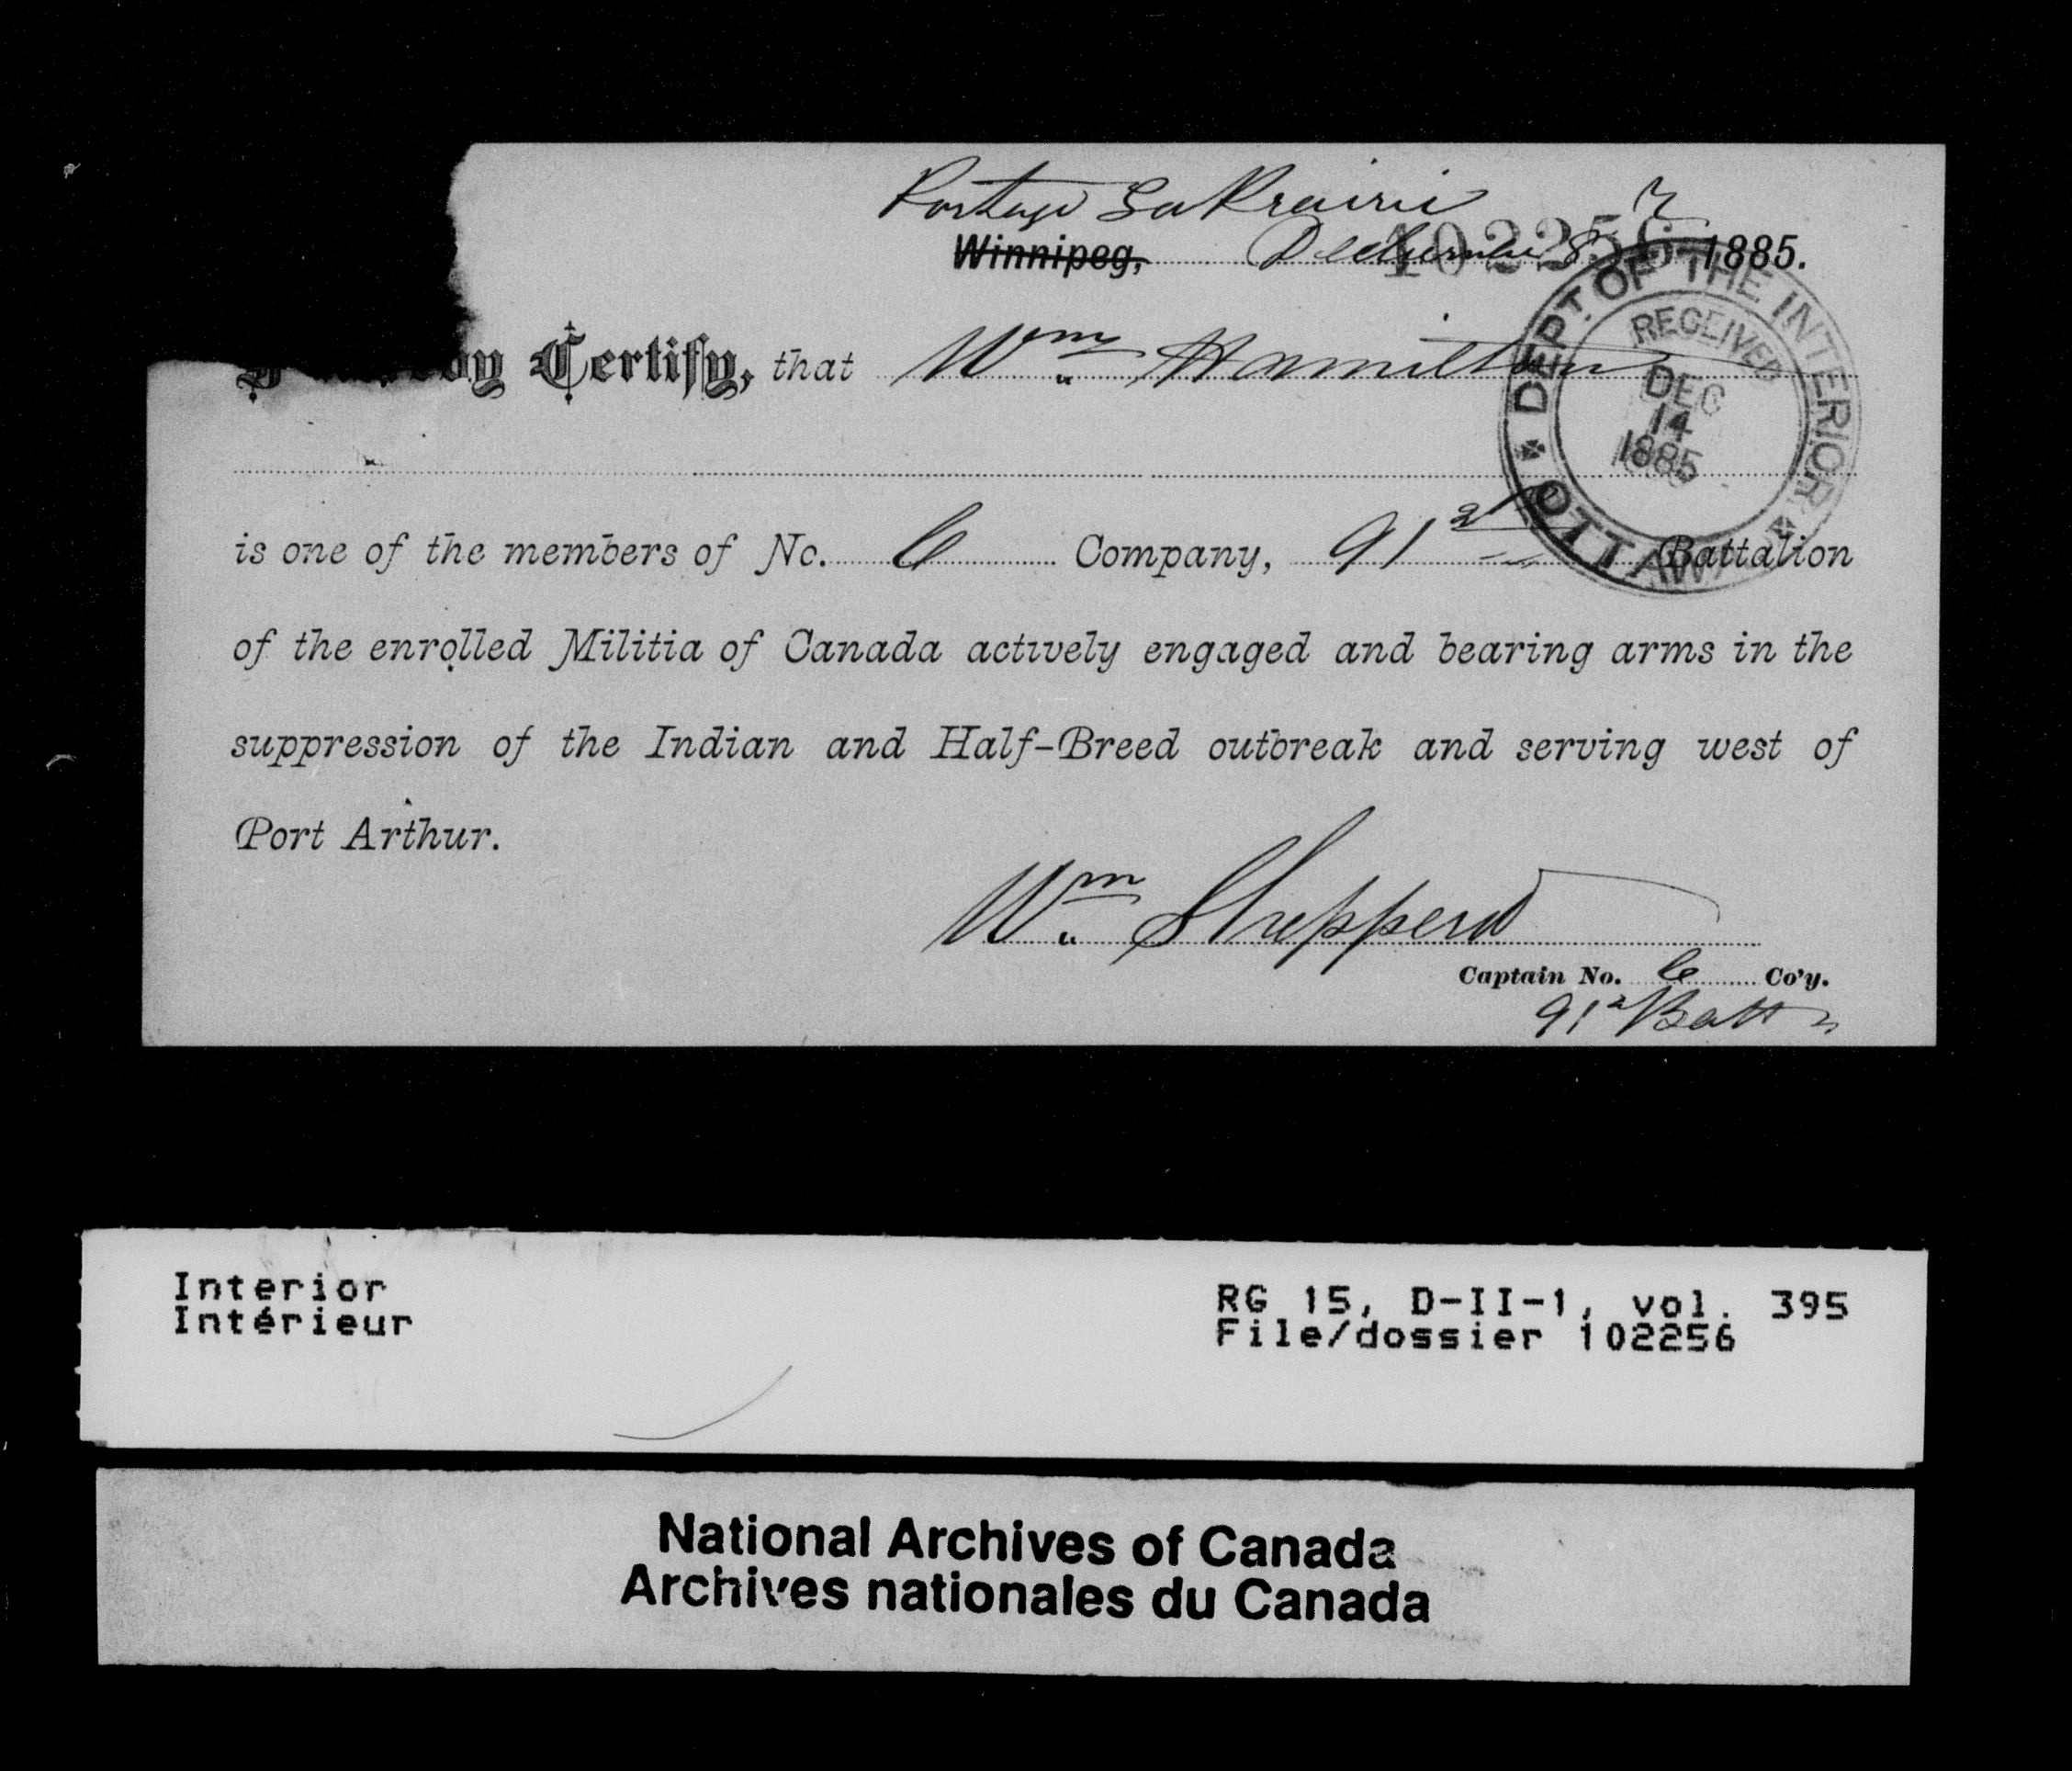 Portage La Prairie
Winnipeg, December 8 1885.
102256
by Certify, that Wm. Hamilton
DEPT. OF THE INTERIOR
OTTAWA
RECEIVED
DEC
14
1885
is one of the members of No. 6 Company, 91st Battalion
of the enrolled Militia of Canada actively engaged and bearing arms in the
suppression of the Indian and Half-Breed outbreak and serving west of
Port Arthur.
Wm. Shepperd
Captain No. 6 Co'y.
91st Battn
Interior
Intérieur
RG 15, D-II-1, vol. 395
File/dossier 102256
National Archives of Canada
Archives nationales du Canada